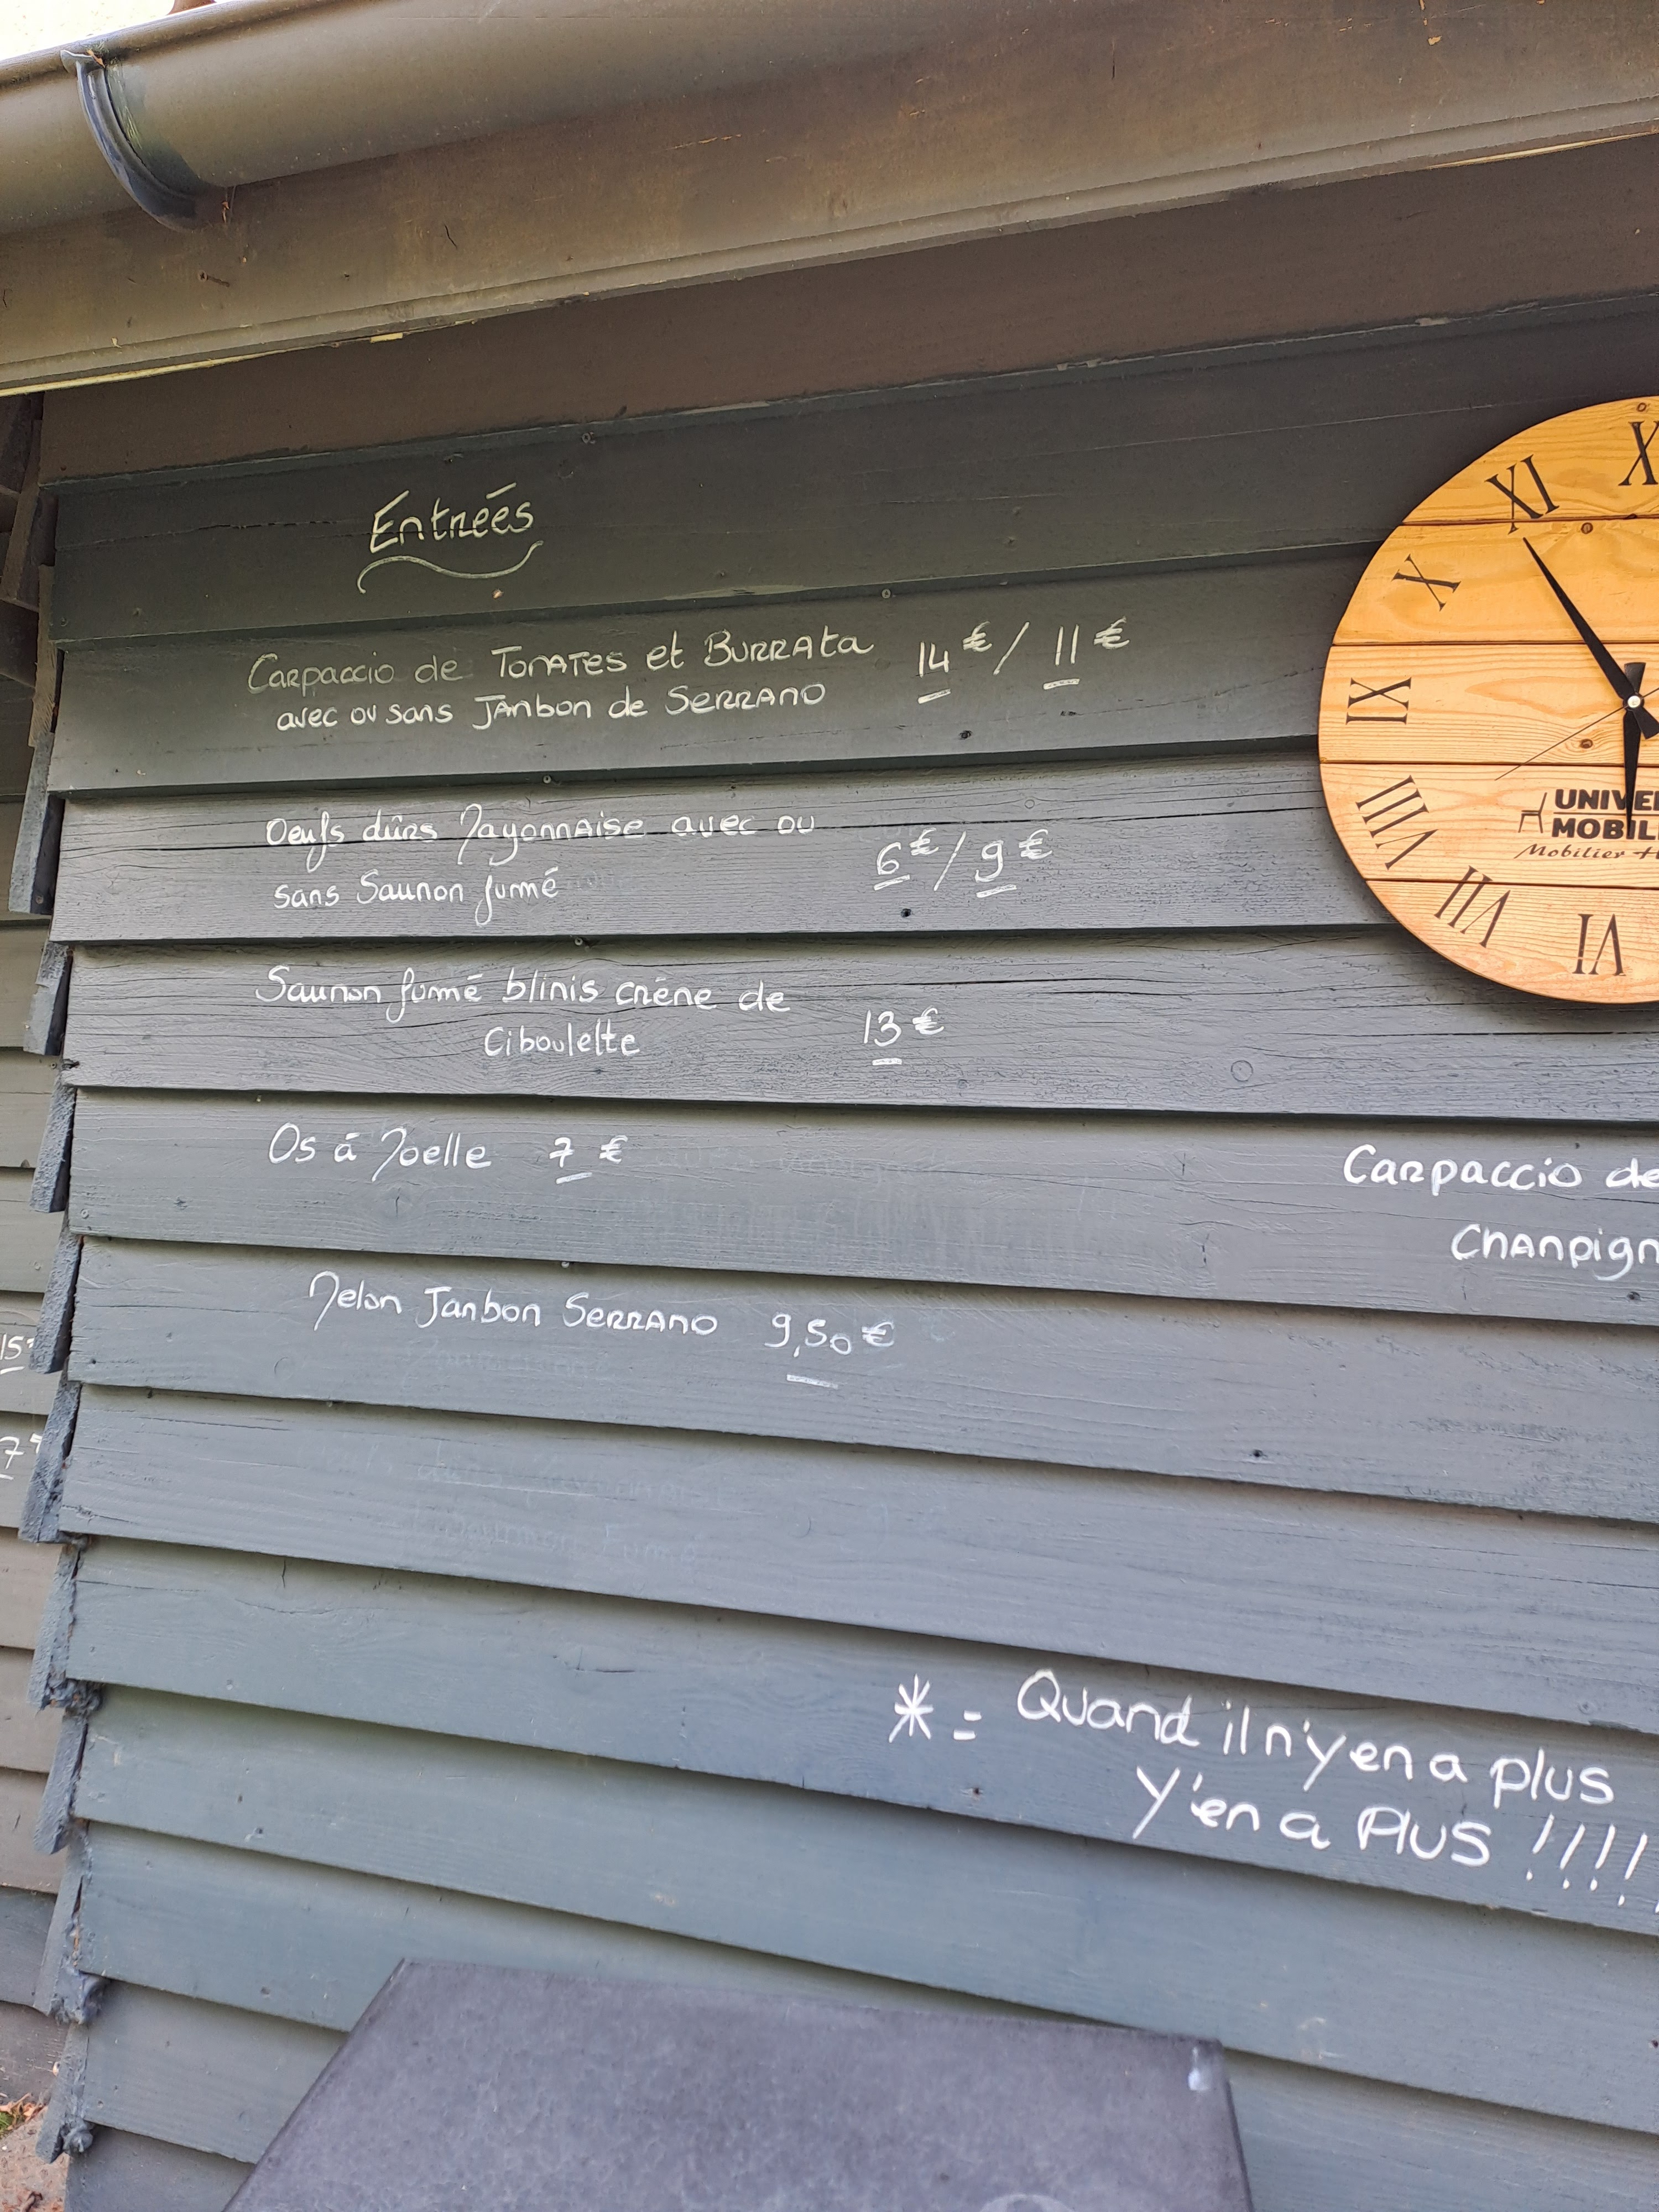 Entrées
Carpaccio de Tomates et Burrata 14€ / 11€
avec ou sans Jambon de Serrano
Oeufs dûrs Mayonnaise avec ou
sans Saumon fumé 6€ / 9€
Saumon fumé blinis crème de
Ciboulette 13€
Os à Moelle 7€
Melon Jambon Serrano 9,50€
Carpaccio de
Champign
* = Quand il n'y en a plus
Y'en a Plus !!!!
X
XI
X
IX
VIII
VII
VI
UNIVE
MOBIL
Mobilier
15
7